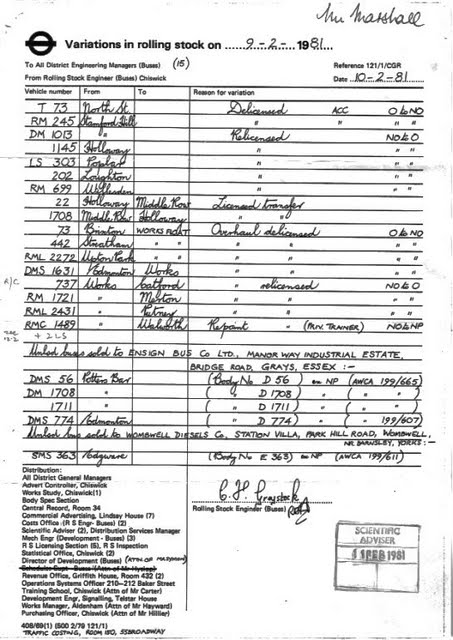 Mr Marshall
Variations in rolling stock on 9-2-1981
To All District Engineering Managers (Buses) (15) Reference 121/1/CGR
From Rolling Stock Engineer (Buses) Chiswick Date 10-2-81
Vehicle number From To Reason for variation
T 73 North St. Delicensed ACC O to NO
RM 245 Stamford Hill " " "
DM 1013 " Relicensed NO to O
1145 Holloway " " "
LS 303 Poplar " " "
202 Loughton " " "
RM 699 Willesden " " "
22 Holloway Middle Row Licensed transfer
1708 Middle Row Holloway " "
73 Brixton WORKS FLOAT Overhaul delicensed O to NO
442 Streatham " " " " " "
RML 2272 Upton Park " " " " " "
DMS 1631 Edmonton Works " " " "
A/C 737 Works Catford " relicensed NO to O
RM 1721 " Merton " " " "
RML 2431 " Putney " " " "
RMC 1489 " Walworth Repaint " (P.R.V. TRAINER) NO to NP
+ 2 LS
Unlicd buses sold to ENSIGN BUS Co LTD., MANOR WAY INDUSTRIAL ESTATE,
BRIDGE ROAD, GRAYS, ESSEX :-
DMS 56 Potters Bar (Body No D 56) on NP (AWCA 199/665)
DM 1708 " " ( " D 1708) " ( " " )
1711 " " ( " D 1711) " ( " " )
DMS 774 Edmonton ( " D 774) " ( " 199/607)
Unlicd bus sold to WOMBWELL DIESELS Co., STATION VILLA, PARK HILL ROAD, WOMBWELL,
NR BARNSLEY, YORKS :-
SMS 363 Edgware (Body No E 363) on NP (AWCA 199/611)
Distribution:
All District General Managers
Advert Controller, Chiswick
Works Study, Chiswick (1)
Body Spec Section
Central Record, Room 34
Commercial Advertising, Lindsay House (7)
Costs Office (R S Engr- Buses) (2)
Scientific Adviser (2), Distribution Services Manager
Mech Engr (Development - Buses) (3)
R S Licensing Section (5), R S Inspection
Statistical Office, Chiswick (2)
Director of Development (Buses)
Schedules Supt - Buses (Attn of Mr Hyslop)
Revenue Office, Griffith House, Room 432 (2)
Operations Systems Officer 210-212 Baker Street
Training School, Chiswick (Attn of Mr Carter)
Development Engr, Signalling, Telstar House
Works Manager, Aldenham (Attn of Mr Hayward)
Purchasing Officer, Chiswick (Attn of Mr Hillier)
408/69(1) (500 2/79 121/1)
TRAFFIC COSTING, ROOM 150, 55 BROADWAY
C. H. Graystock
Rolling Stock Engineer (Buses)
SCIENTIFIC
ADVISER
11 FEB 1981